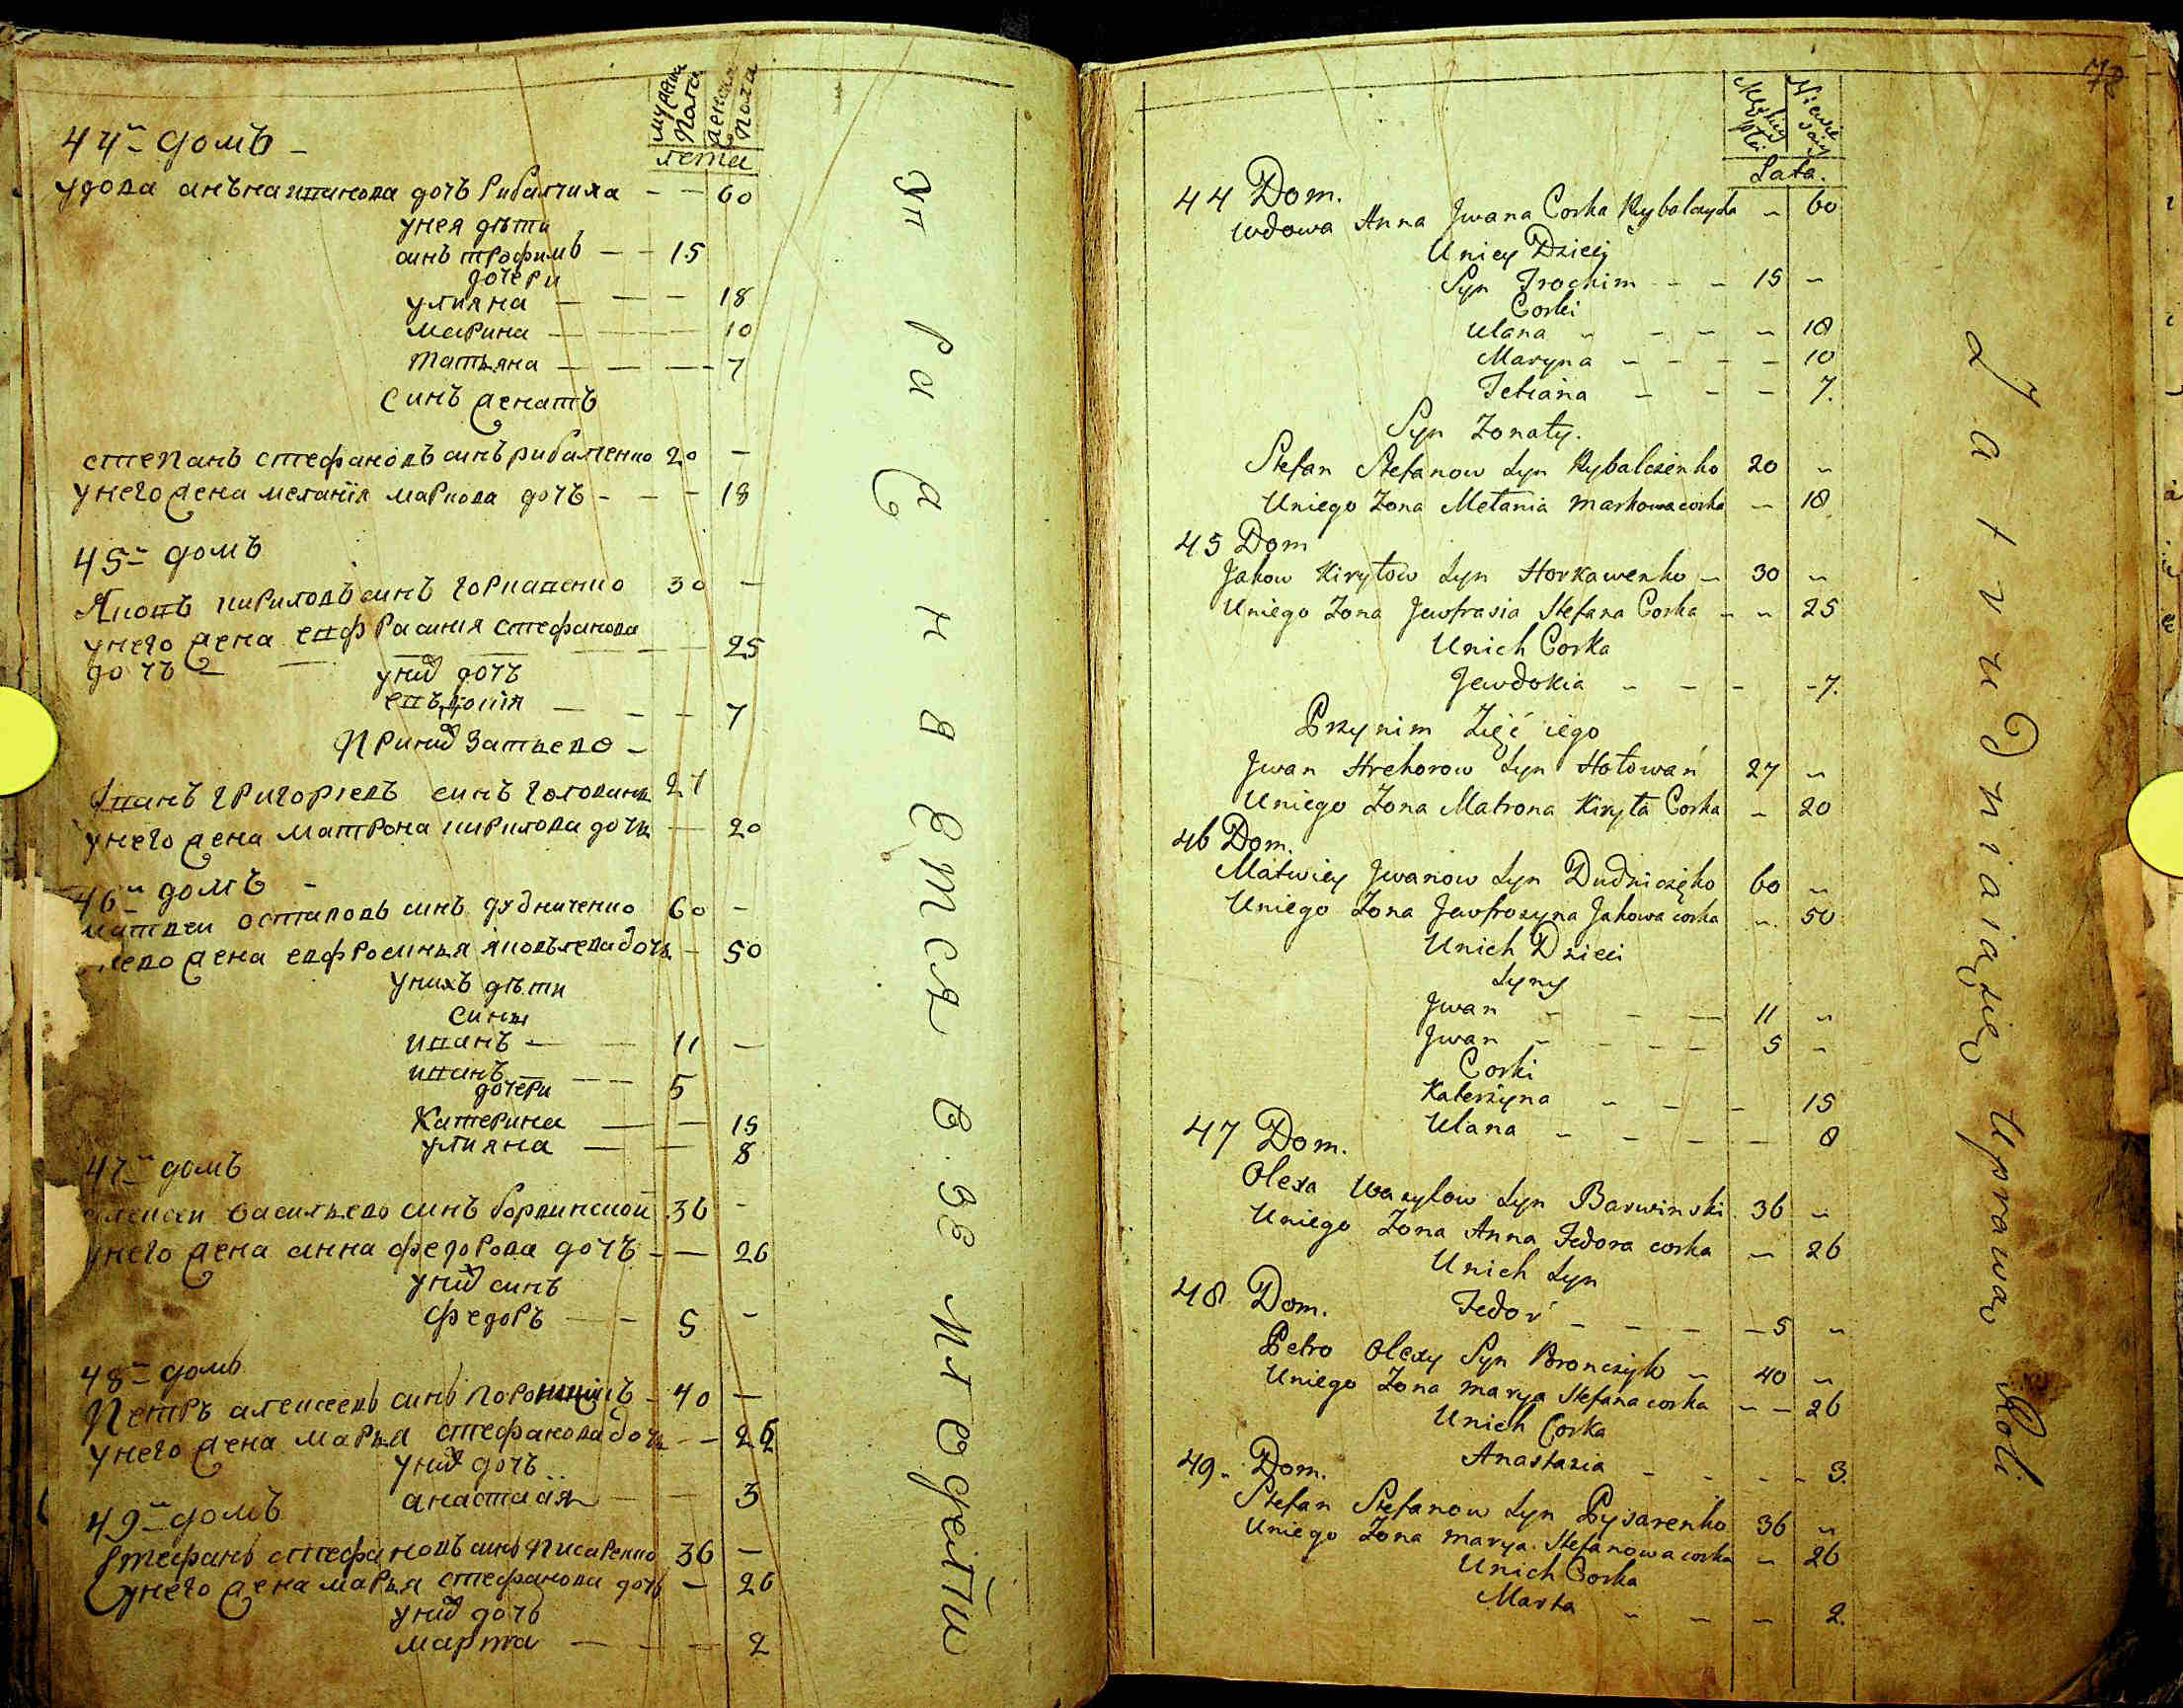 мужеска пола
женска пола
лета
44и домъ –
удова анъна иванова дочь рибалчиха – – 60
у нея дѣти
синъ трофимъ – – 15
дочери
улияна – – – 18
марина – – – 10
татьяна – – – – 7
синъ женатъ
степанъ стефановъ синъ рибалченко 20 –
у него жена меланія маркова дочь – – – 18
45и домъ
Яковъ кириловъ синъ горкавенко 30 –
у него жена евфрасиния стефанова
дочь – – – – 25
у них дочь
евъдокия – – – 7
При них зять ево –
Иванъ григориевъ синъ головань 27
у него жена матрона кирилова дочь – 20
46и домъ –
матвеи остаповъ синъ дудниченко 60 –
ево жена евфросинья яковълева дочь – 50
у нихъ дѣти
сины
иванъ – – 11 –
иванъ – – – 5
дочери
катерина – – 15
улияна – – 8
47и домъ
алексеи васильево синъ борвинской 36 –
у него жена анна федорова дочь – – 26
у них синъ
федоръ – – 5 –
48и домъ
Петръ алексеевъ синъ – 40 –
у него жена марья стефанова дочь – – 26
у них дочь
анастасия – – 3
49и домъ
Стефанъ стефановъ синъ писаренко 36 –
у него жена марья стефанова дочь – 26
у них дочь
марта – – – 2
упражняется в земледелии
72
Męskiey płci
Niewieściey
Lata.
44 Dom.
Wdowa Anna Jwana Corka Rybalczycha – 60
Uniey Dzieci
Syn Trochim – – 15 –
Corki
Ulana – – – – 18
Maryna – – – – 10
Tetiana – – – 7.
Syn Zonaty.
Stefan Stefanow Syn Rybalczenko 20 –
Uniego Zona Melania Markowa corka – 18
45 Dom
Jakow Kiryłow Syn Horkawenko – 30 –
Uniego Zona Jewfrasia Stefana Corka – – 25
Unich Corka
Jewdokia – – – – 7.
Przynim Zięć iego
Jwan Hrehorow Syn Hołowań 27 –
Uniego Zona Matrona Kiryła Corka – 20
46 Dom.
Matwiey Jwanow Syn Dudniczęko 60 –
Uniego Zona Jewfrozyna Jakowa corka – 50
Unich Dzieci
Syny
Jwan – – – 11 –
Jwan – – – – 5 –
Corki
Katerzyna – – – 15
Ulana – – – – 8
47 Dom.
Olexa Wasylow Syn Barwinski 36 –
Uniego Zona Anna Fedora corka – 26
Unich Syn
Fedor – – – – 5 –
48 Dom.
Petro Olexy Syn Poronczyk – 40 –
Uniego Zona marya Stefana corka – – 26
Unich Corka
Anastazia – – – – 3.
49 Dom.
Stefan Stefanow Syn Pysarenko 36 –
Uniego Zona marya Stefanowa corka – 26
Unich Corka
Marta – – – 2.
Zatrudniaią się Uprawą Roli